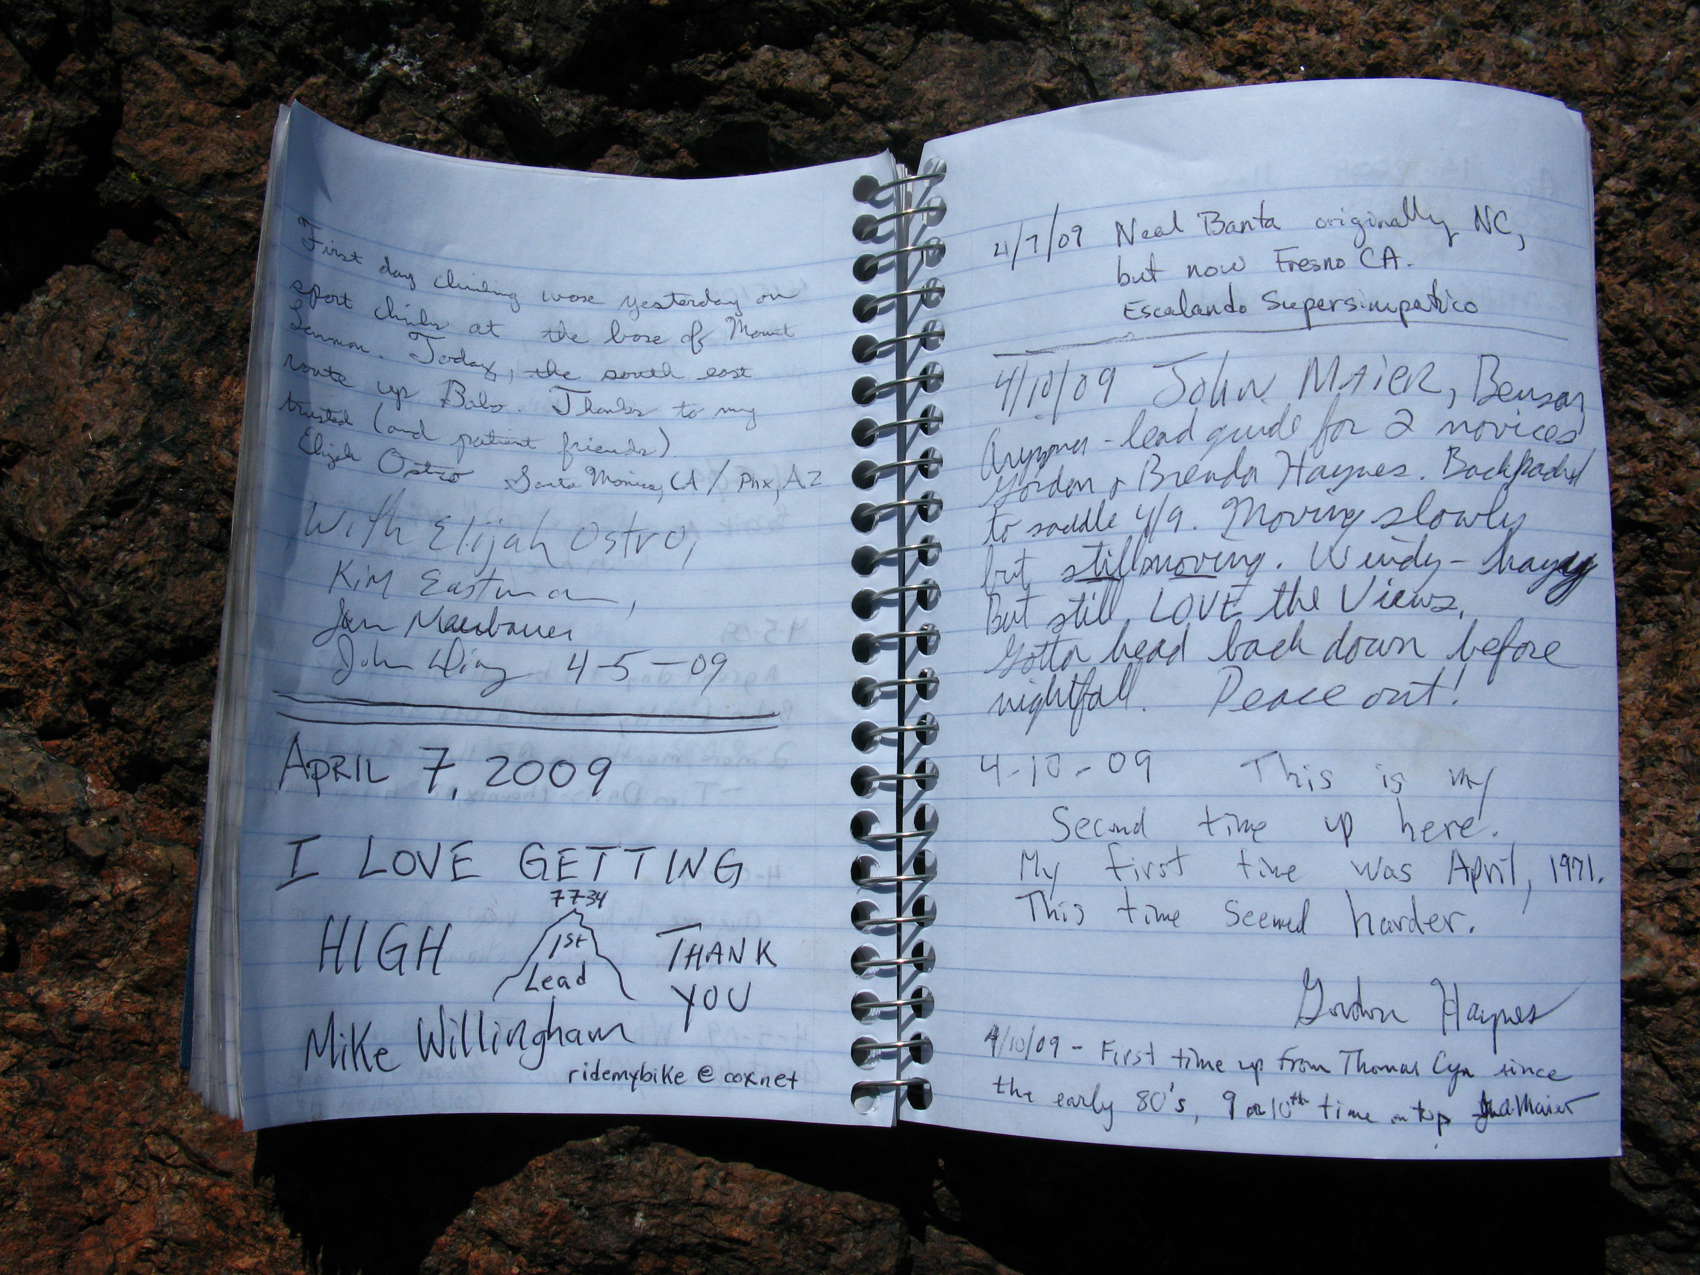 First day climbing was yesterday on
sport climbs at the base of Mount
Lemmon. Today, the south east
route up Babo. Thanks to my
trusted (and patient friends).
Elijah Ostro Santa Monica, CA / Phx, AZ
With Elijah Ostro,
Kim Eastman,
John 4-5-09
APRIL 7, 2009
I LOVE GETTING
7734
HIGH 1st Lead THANK
YOU
Mike Willingham
ridemybike@cox.net
4/7/09 Neal Banta originally NC,
but now Fresno CA.
Escalando Supersimpatico
4/10/09 John Maier, Benson,
Arizona - lead guide for 2 novices
Gordon & Brenda Haynes. Backpacked
to saddle 4/9. Moving slowly
but still moving. Windy - hazy
But still LOVE the Views.
Gotta head back down before
nightfall. Peace out!
4-10-09 This is my
Second time up here.
My first time was April, 1971.
This time seemed harder.
Gordon Haynes
4/10/09 - First time up from Thomas Cyn since
the early 80's, 9 or 10th time on top Maier